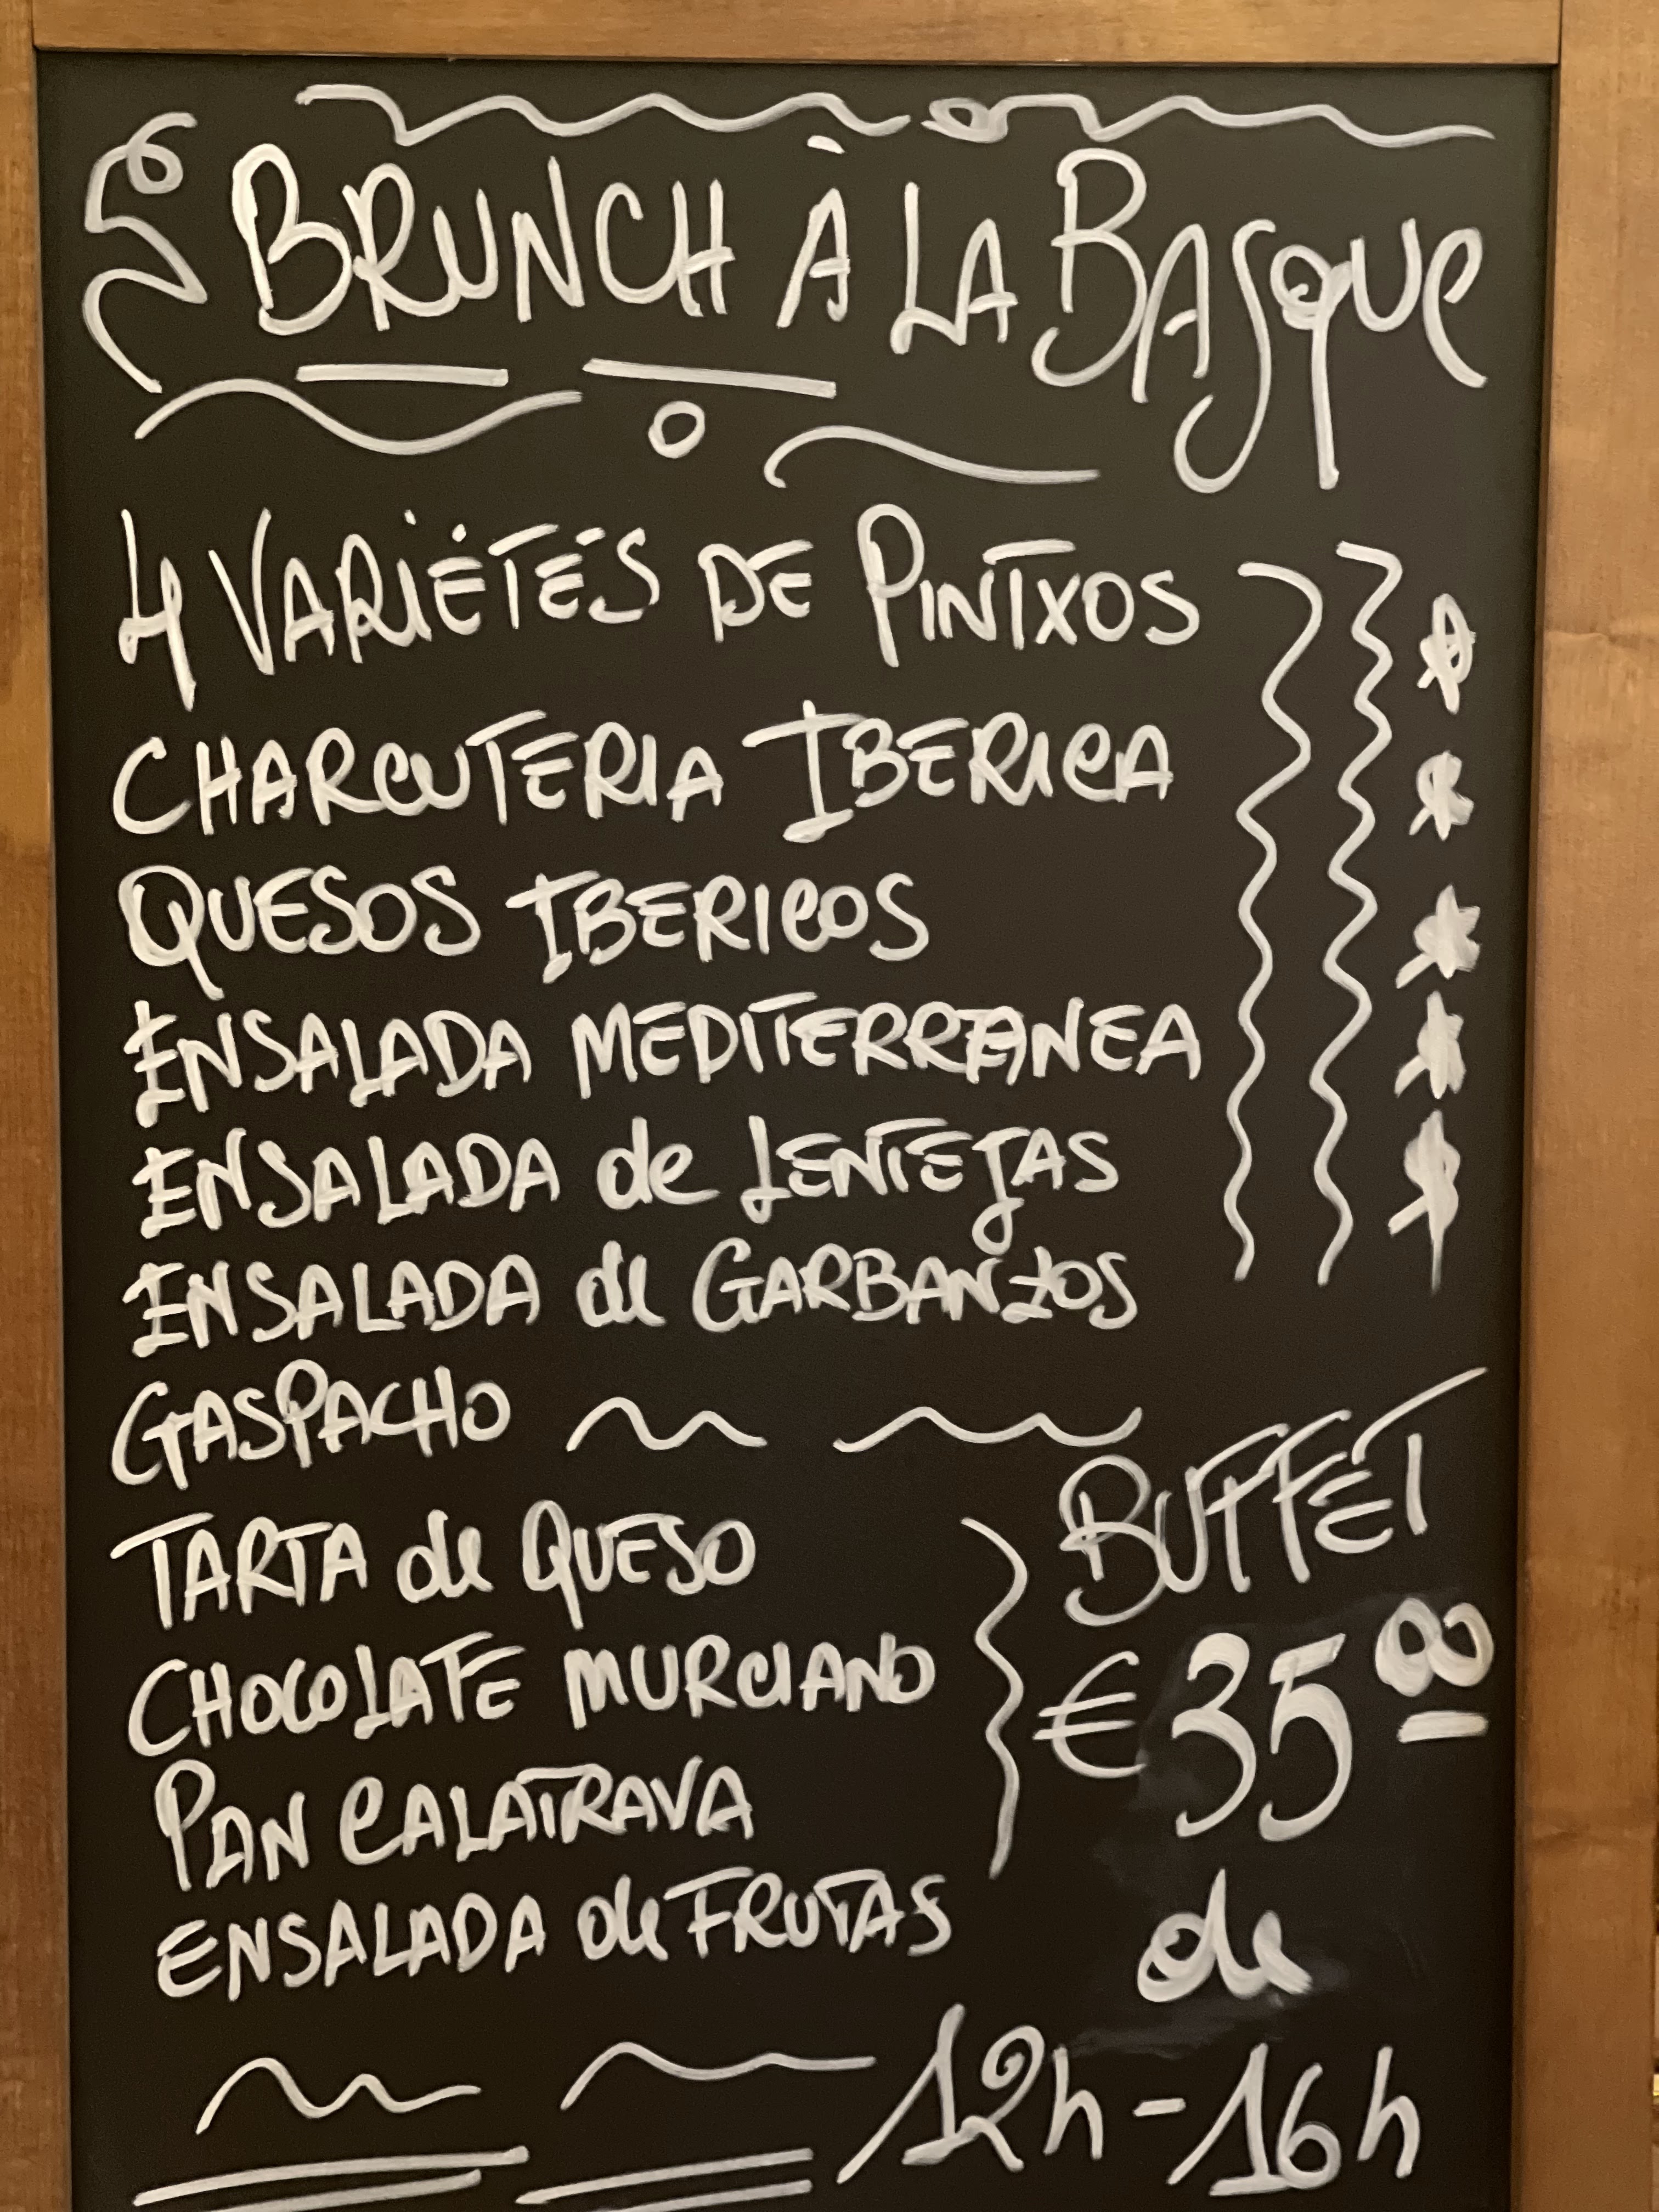 BRUNCH À LA BASQUE
4 VARIÉTÉS DE PINTXOS
CHARCUTERIA IBERICA
QUESOS IBERICOS
ENSALADA MEDITERRANEA
ENSALADA de LENTEJAS
ENSALADA de GARBANZOS
GASPACHO
TARTA de QUESO
CHOCOLATE MURCIANO
PAN CALATRAVA
ENSALADA de FRUTAS
BUFFET
€35⁰⁰
de
12h-16h